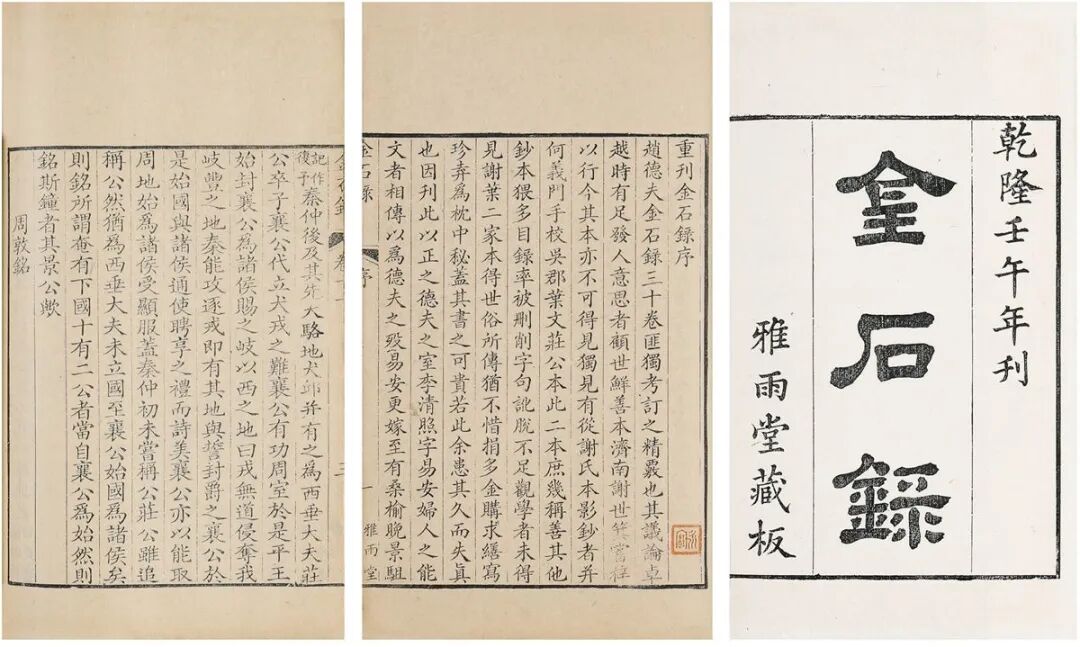 乾隆壬午年刊
金石錄
雅雨堂藏板
重刊金石錄序
趙德夫金石錄三十卷匪獨考訂之精覈也其議論卓
越時有足發人意思者顧世鮮善本濟南謝世箕嘗梓
以行今其本亦不可得見獨見有從謝氏本影鈔者并
何義門手校吳郡葉文莊公本此二本庶幾稱善其他
鈔本猥多目錄率被删削字句訛脫不足觀學者未得
見謝葉二家本得世俗所傳猶不惜捐多金購求繕寫
珍弆為枕中秘蓋其書之可貴若此余患其久而失眞
也因刊此以正之德夫之室李清照字易安婦人之能
文者相傳以為德夫之歿易安更嫁至有桑榆晚景駔
金石錄 序 一 雅雨堂
金石錄 卷十一 三
記作復予秦仲後及其先大駱地犬邱并有之為西垂大夫莊
公卒子襄公代立犬戎之難襄公有功周室於是平王
始封襄公為諸侯賜之岐以西之地曰戎無道侵奪我
岐豐之地秦能攻逐戎即有其地與誓封爵之襄公於
是始國與諸侯通使聘享之禮而詩美襄公亦以能取
周地始為諸侯受顯服蓋秦仲初未嘗稱公莊公雖追
稱公然猶為西垂大夫未立國至襄公始國為諸侯矣
則銘所謂奄有下國十有二公者當自襄公為始然則
銘斯鐘者其景公歟
周敦銘